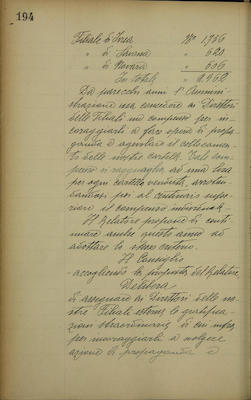 194
Filiale di Ivrea N° 1956
" di Savona " 620
" di Novara " 656
In totale
Da parecchi anni l'Amministrazione usa concedere ai Direttori
delle Filiali un compenso per incoraggiarli
a fare opera di propaganda
e agevolare il collocamento
delle nostre cartelle. Tale compenso
si ragguaglia ad una lira
per ogni cartella venduta, arrotondandosi
poi al centinaio superiore
il compenso individuale.
Il Relatore propone di continuare
anche questo anno ad
adottare lo stesso criterio.
Il Consiglio
accogliendo la proposta del Relatore
Delibera
di assegnare ai Direttori delle nostre
Filiali esterne le gratificazioni
straordinarie di cui infra,
per incoraggiarli a svolgere
azione di propaganda e